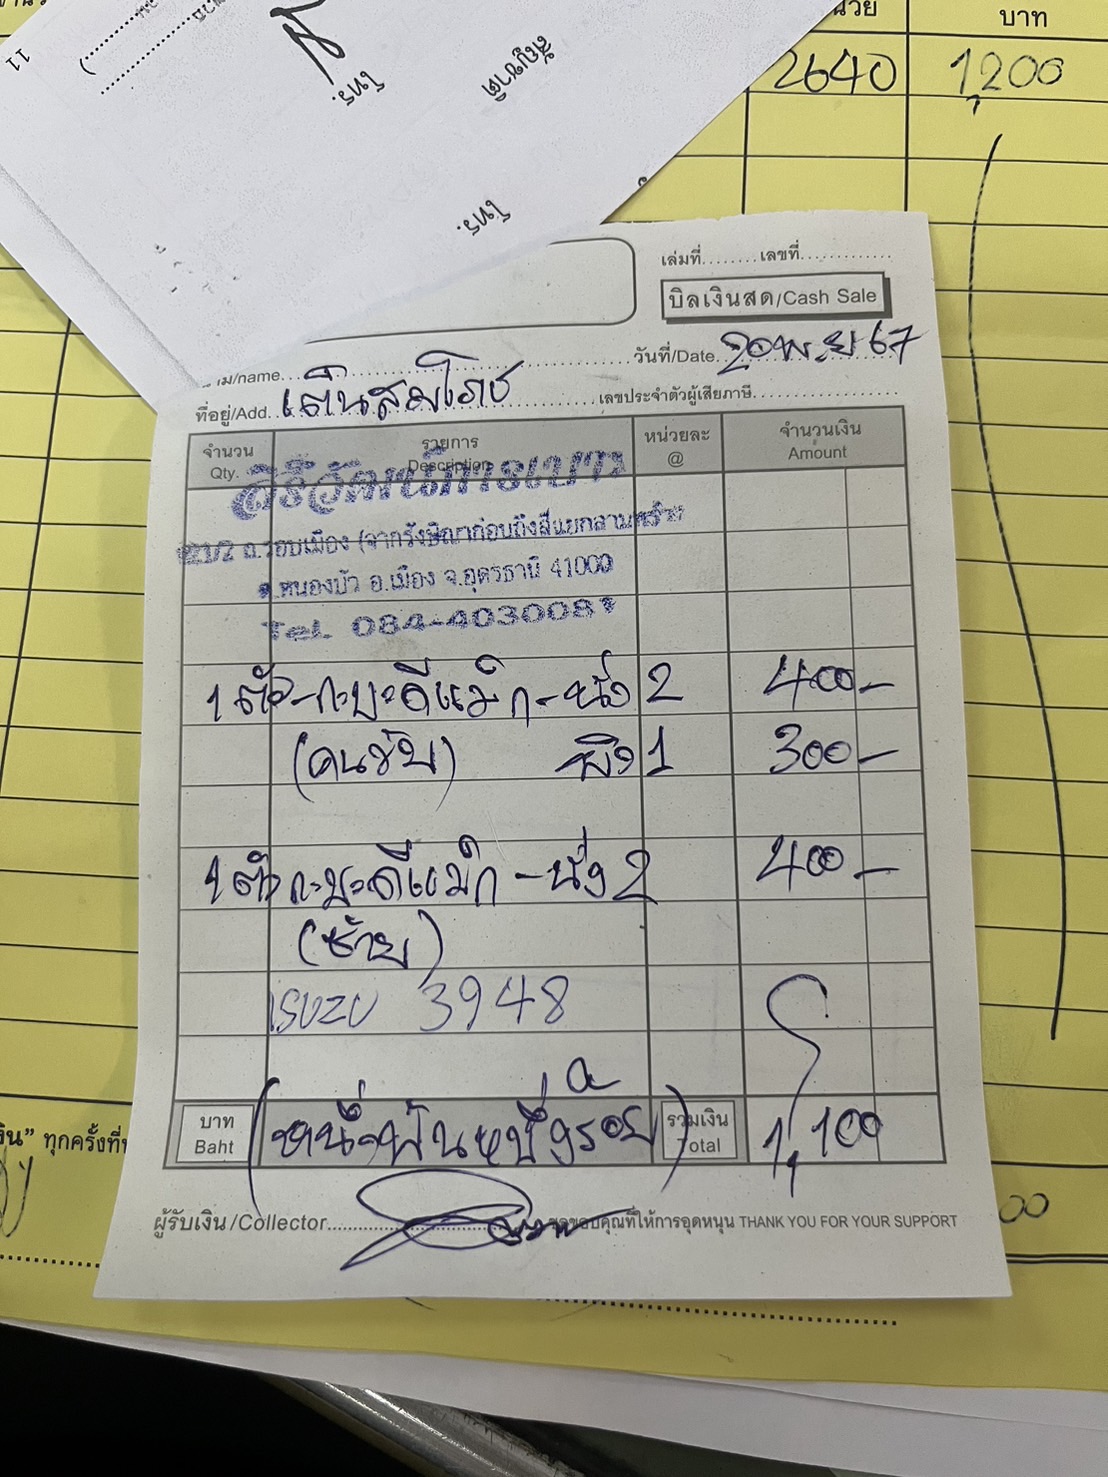 บาท
2640 1,200
สัญชาติ
โทร.
โทร.
11
เล่มที่........เลขที่.............
บิลเงินสด/Cash Sale
วันที่/Date 20 พ.ย 67
นาม/name
ที่อยู่/Add. เต็นสมโภช เลขประจำตัวผู้เสียภาษี
จำนวน รายการ หน่วยละ จำนวนเงิน
Qty. Description @ Amount
สิริวัฒน์การเบาะ
ถ.รอบเมือง (จากรังษิณาก่อนถึงสี่แยก
หนองบัว อ.เมือง จ.อุดรธานี 41000
Tel. 084-403008
1 ตัว-กะบะดีแม็ก-นั่ง 2 400-
(คนขับ) พิง 1 300-
1 ตัว กะบะดีแม็ก-นั่ง 2 400-
(ซ้าย)
ISUZU 3948
บาท (หนึ่งพันหนึ่งร้อย) รวมเงิน 1,100
Baht Total
เงิน” ทุกครั้งที่
ผู้รับเงิน/Collector ขอขอบคุณที่ให้การอุดหนุน THANK YOU FOR YOUR SUPPORT
00